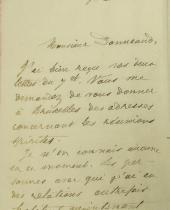 Monsieur
J'ai bien reçu vos deux
lettres du 7 et. Vous me
demandez de vous donner
à Bruxelles des adresses
concernant les réunions
spirites.
Je n'en connais aucune
en ce moment. Les per-
sonnes avec qui j'ai eu
des relations autrefois